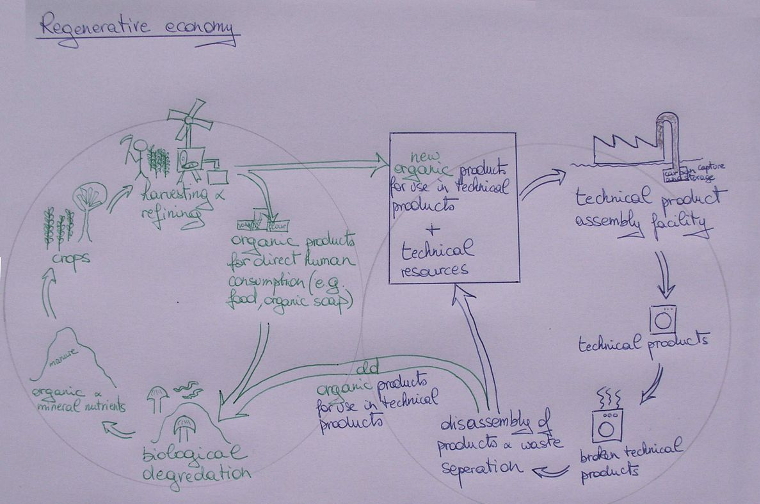 Regenerative economy
harvesting &
refining
crops
manure
organic &
mineral nutrients
biological
degredation
organic products
for direct human
consumption (e.g.
food, organic soap)
new
organic products
for use in technical
products
+
technical
resources
carbon capture
and storage
technical product
assembly facility
technical products
broken technical
products
disassembly of
products & waste
seperation
old
organic products
for use in technical
products